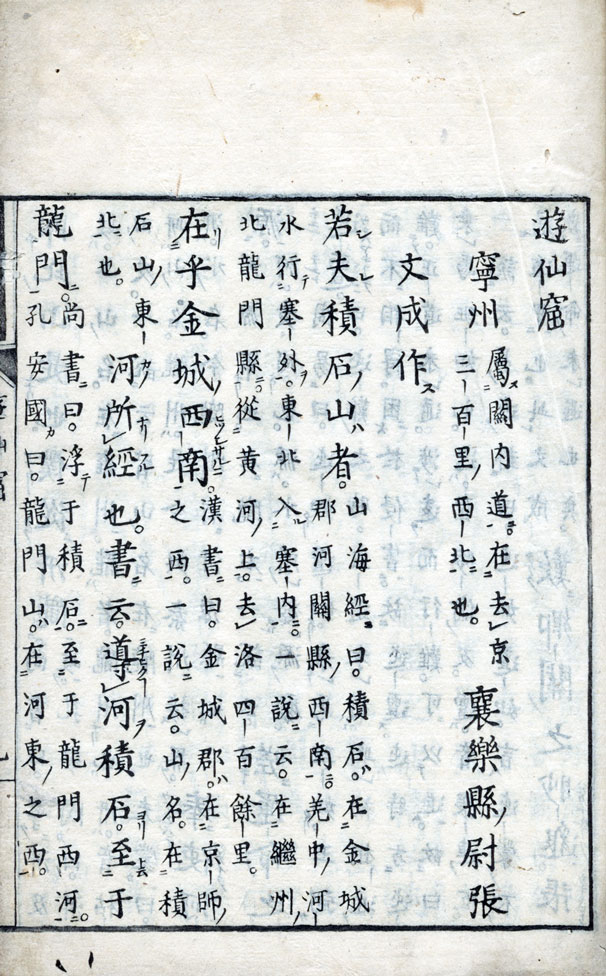 遊仙窟
寧州屬關内道。在去京
三百里西北也。襄樂縣尉張
文成作
若夫積石山者。山海經曰。積石。在金城
郡河關縣西南。羌中。河
水行塞外。東北入塞内。說云。在繼州
北龍門縣。從黄河上。去洛四百餘里。
在乎金城西南。漢書曰。金城郡。在京師
之西。一說云。山名。在積
石山東
北也。河所經也。書云。導河積石。至于
龍門。尚書曰。浮于積石。至于龍門西河。
孔安國曰。龍門山。在河東之西。